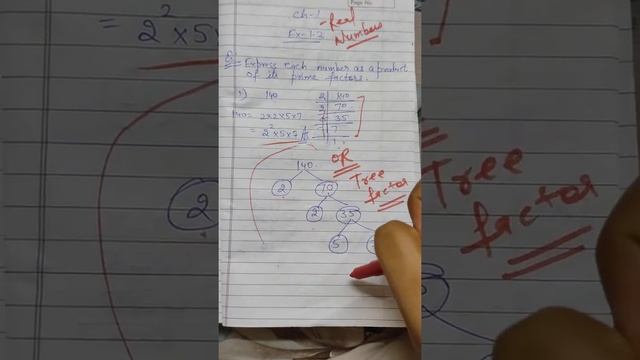 Page No.
Ch-1
- Real
Numbers
Ex-1.2
Express each number as a product
of its prime factors.
1) 140
140 = 2×2×5×7
= 2²×5×7
2 | 140
2 | 70
35
7
1
OR
Tree
factor
140
2 70
2 35
5